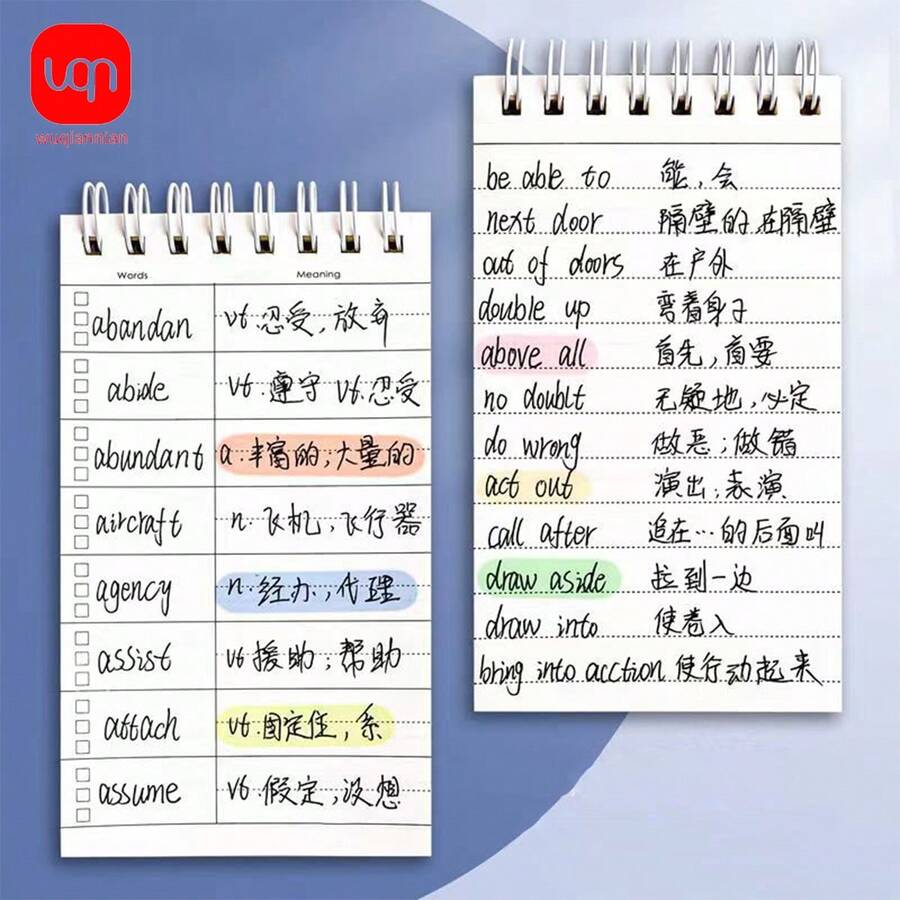 uqn
wuqiannian
Words Meaning
abandan vt.忍受,放弃
abide vt.遵守 vt.忍受
abundant a.丰富的;大量的
aircraft n.飞机,飞行器
agency n.经办;代理
assist vt援助;帮助
attach vt.固定住,系
assume vt.假定,没想
be able to 能,会
next door 隔壁的,在隔壁
out of doors 在户外
double up 弯着身子
above all 首先,首要
no doublt 无疑地,必定
do wrong 做恶;做错
act out 演出;表演
call after 追在…的后面叫
draw aside 拉到一边
draw into 使卷入
bring into acction 使行动起来